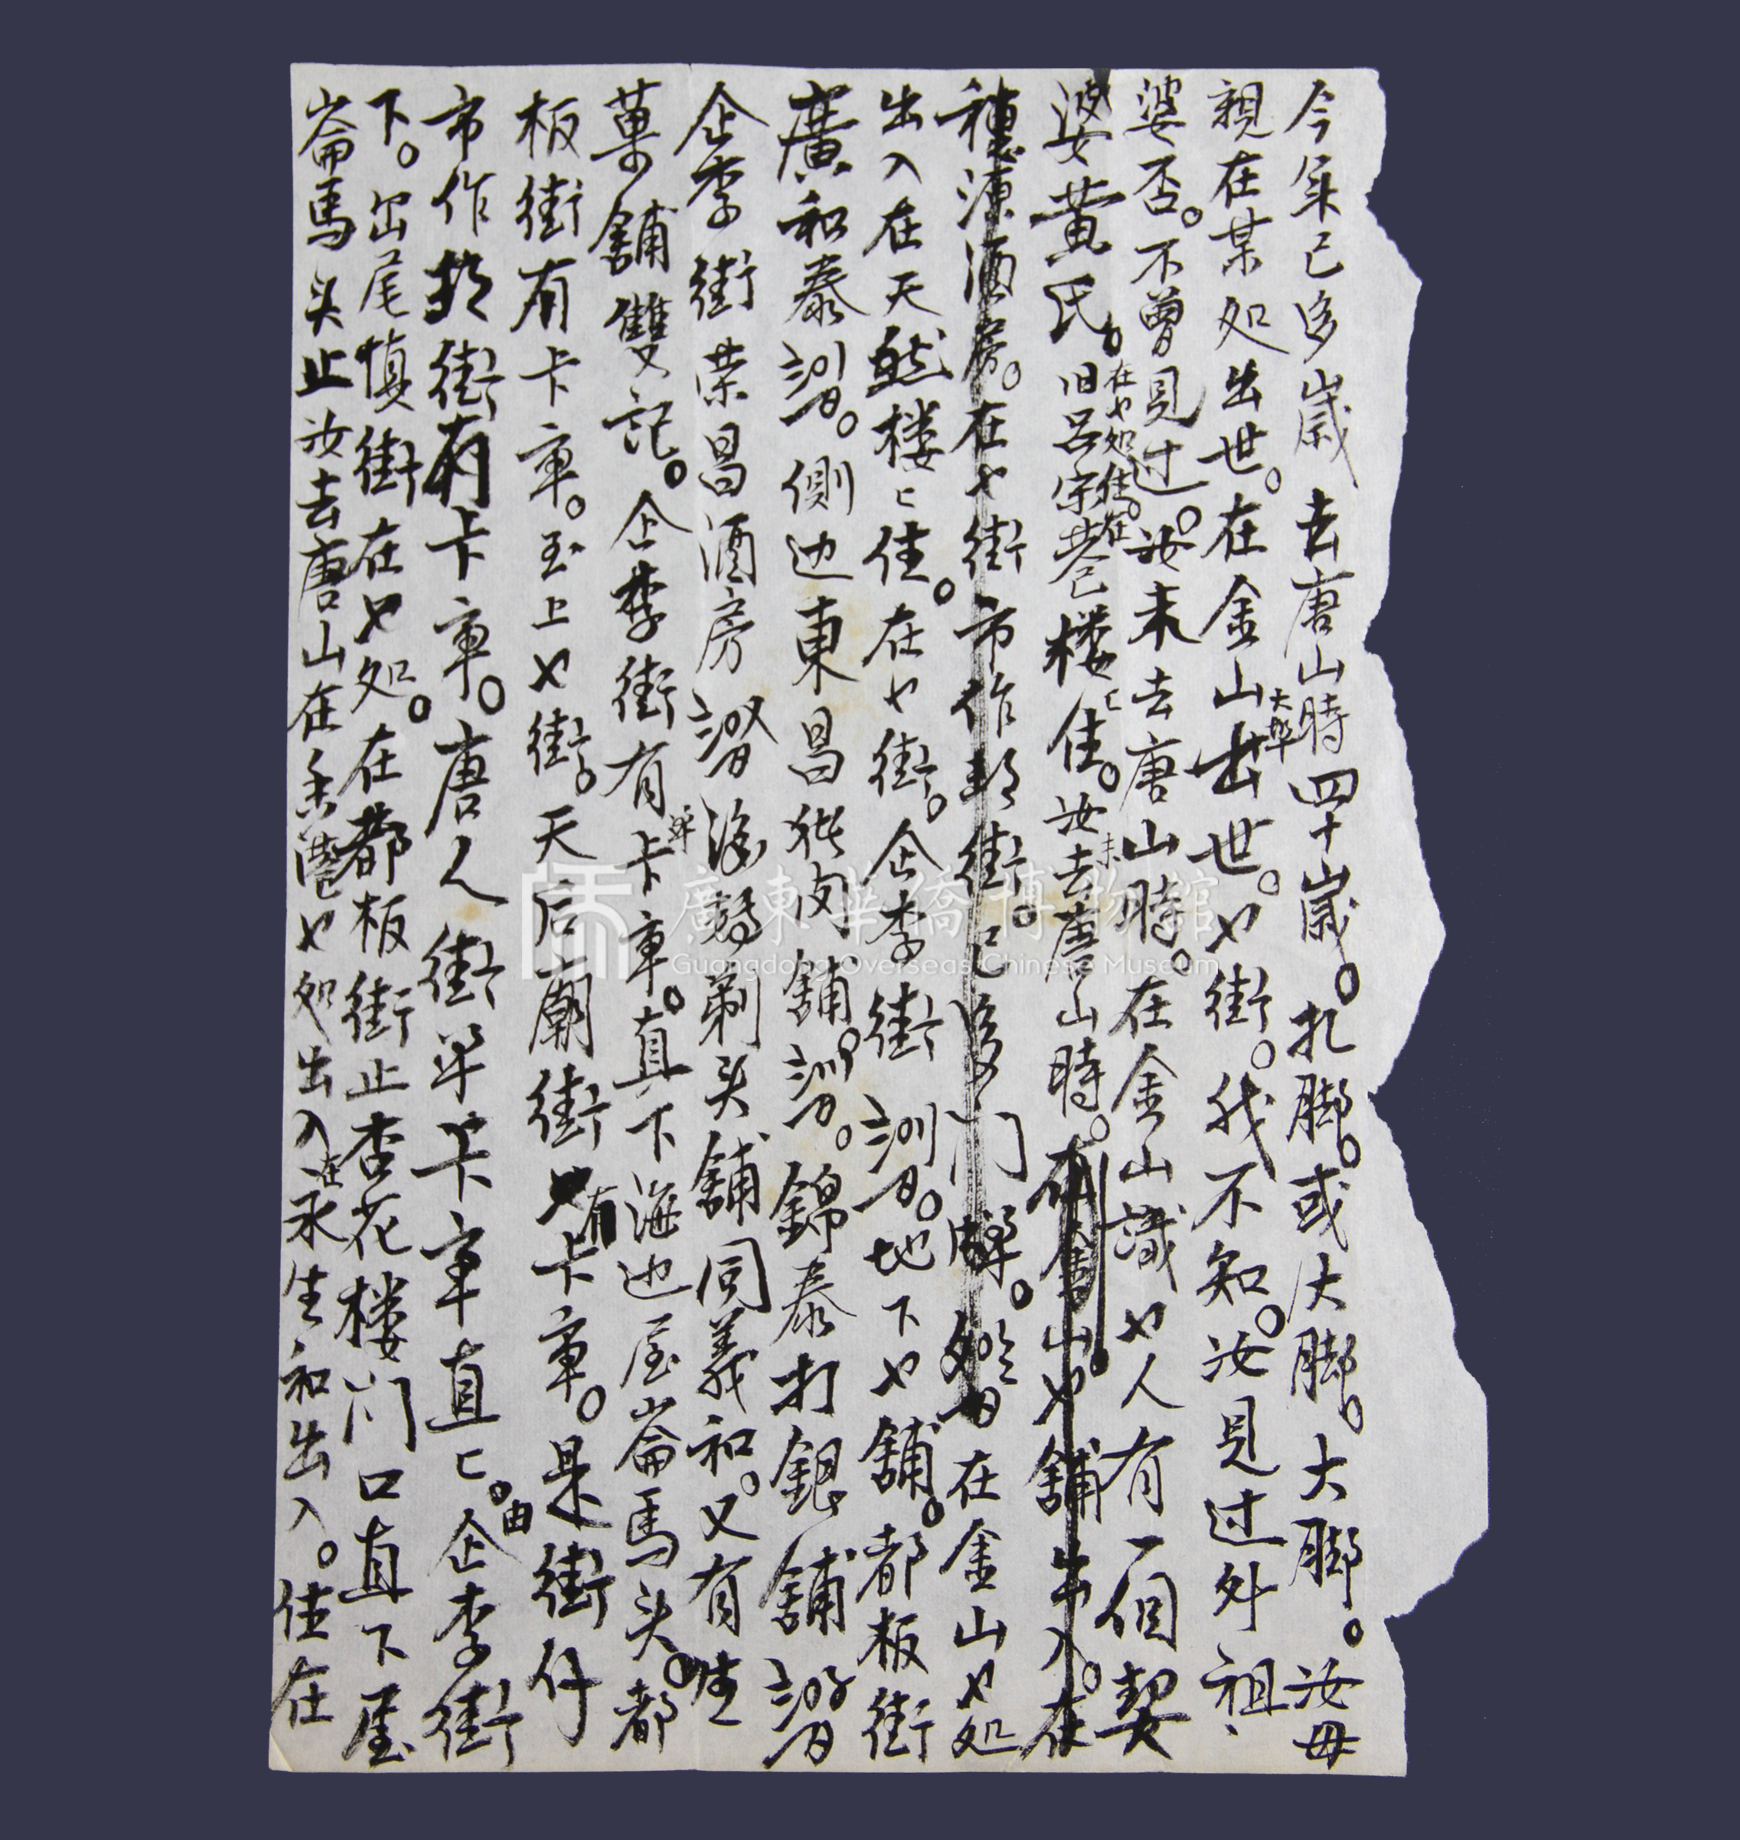 今年已多歲去唐山時四十歲。扎脚。或大脚。大脚。汝母
親在某处出世。在金山大埠出世。乜街。我不知。汝見过外祖
婆否。不曾見过。汝未去唐山時。在金山識乜人有一個契
婆黄氏。在乜処住。在旧呂宋巷已楼匕住。汝未去唐山時。在
穗源酒房。在乜街市作郡街。已 門牌。 在金山乜処
出入在天然楼匕住。在乜街。企李街 地下乜舖。都板街
廣和泰 。側边東昌 舖。 。錦泰打銀舖
企李街荣昌酒房 剃头舖同義和。又有生
菓舖雙記。企李街有卡車。直下海边屋崙馬头。都
板街有卡車。至上乜街。天后廟街有卡車。是街仔
市作郡街有卡車。唐人街 卡車直匕。由企李街
下。 尾慎街在乜处。在都板街止杏花楼门口直下屋
崙馬头止汝去唐山在香港乜处出入在永生和出入。住在
廣東華僑博物館
Guangdong Overseas Chinese Museum